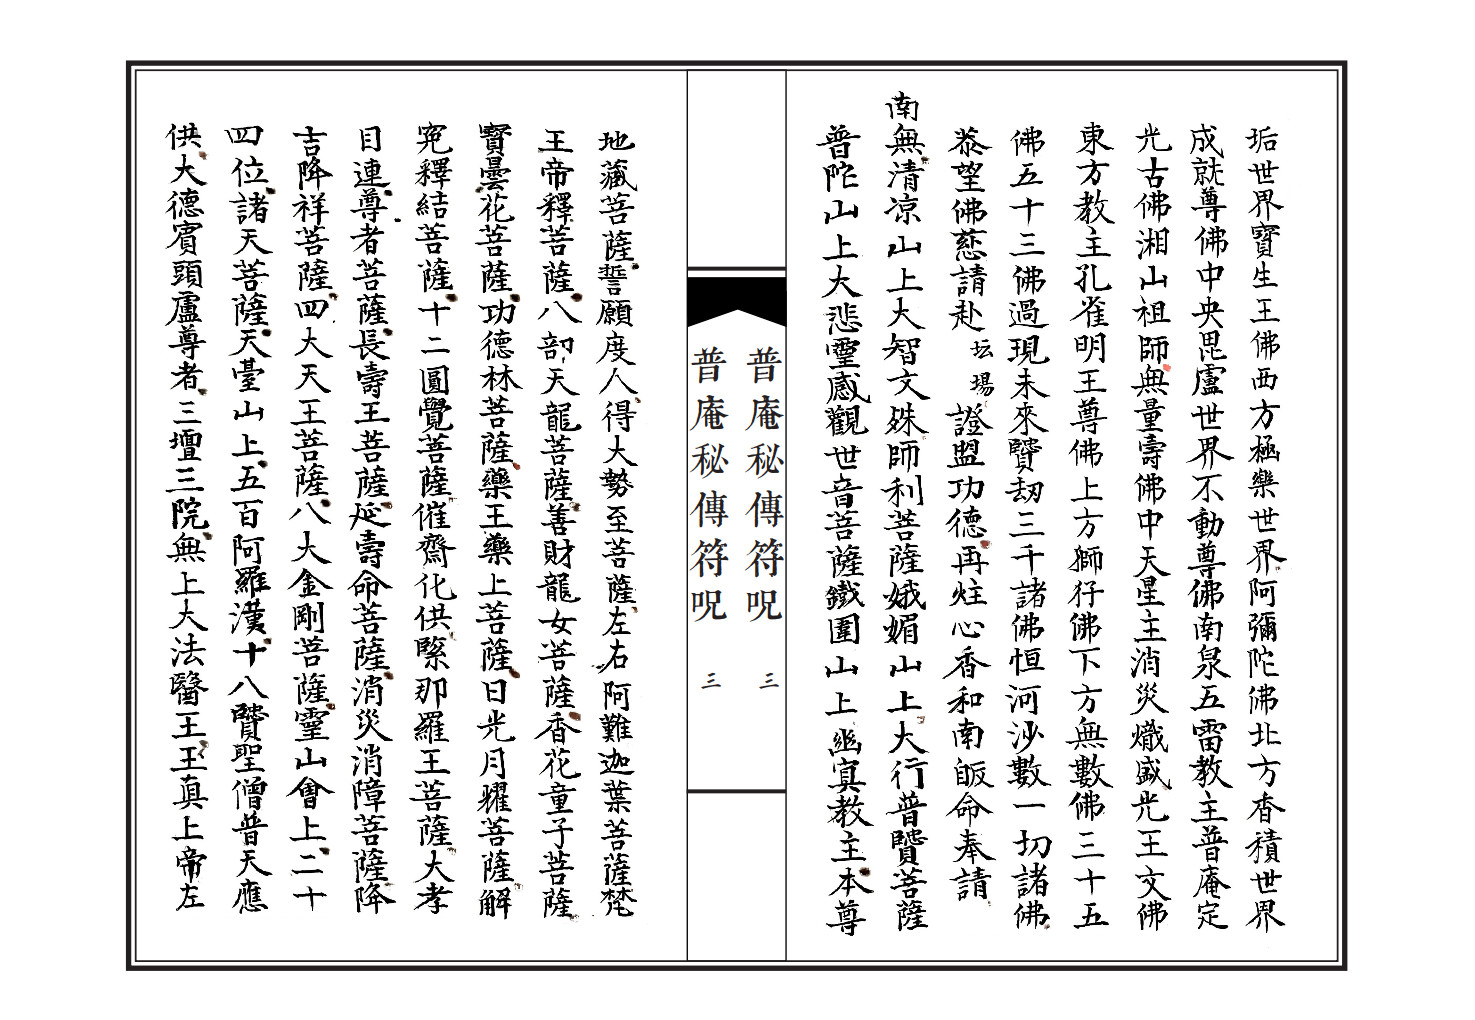 垢世界寳生王佛西方極樂世界阿彌陀佛北方杳積世界
成就尊佛中央毘盧世界不動尊佛南泉五雷教主普庵定
光古佛湘山祖師無量壽佛中天星主消災熾盛光王文佛
東方教主孔雀明王尊佛上方獅仔佛下方無數佛三十五
佛五十三佛過現未來賢劫三千諸佛恒河沙數一切諸佛
恭望佛慈請赴坛場證盟功德再炷心香和南皈命奉請
南無清凉山上大智文殊師利菩薩娥媚山上大行普賢菩薩
普陀山上大悲靈感觀世音菩薩鐵圍山上幽冥教主本尊
普庵秘傳符呪 三
普庵秘傳符呪 三
地藏菩薩誓願度人得大勢至菩薩左右阿難迦葉菩薩梵
王帝釋菩薩八部天龍菩薩善財龍女菩薩香花童子菩薩
寳曇花菩薩功德林菩薩藥王藥上菩薩日光月耀菩薩解
寃釋結菩薩十二圓覺菩薩催齋化供緊那羅王菩薩大孝
目連尊者菩薩長壽王菩薩延壽命菩薩消災消障菩薩降
吉降祥菩薩四大天王菩薩八大金剛菩薩靈山會上二十
四位諸天菩薩天臺山上五百阿羅漢十八賢聖僧普天應
供大德賓頭盧尊者三壇三院無上大法醫王玉真上帝左